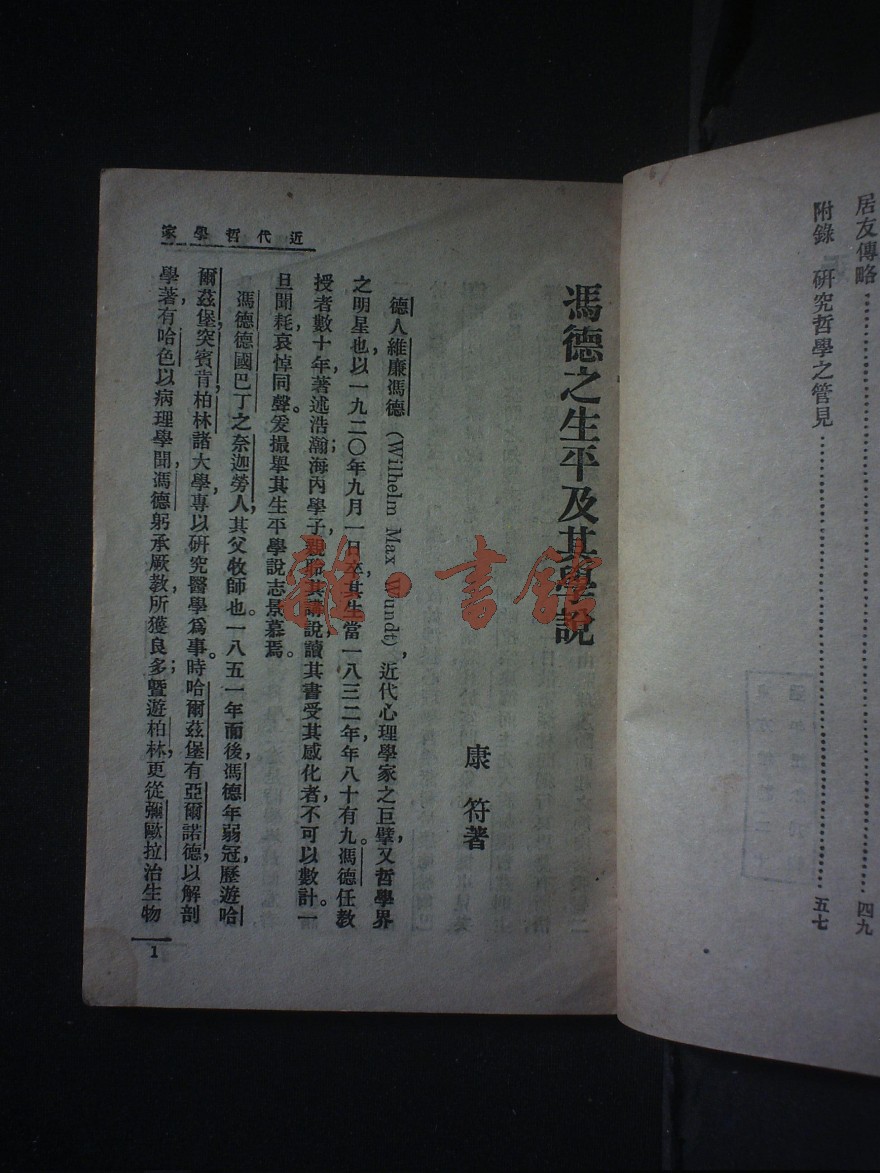 居友傳略……………四九
附錄　研究哲學之管見……………五七
近代哲學家
馮德之生平及其學說
康符著
德人維廉馮德（Wilhelm Max Wundt），近代心理學家之巨擘，又哲學界
之明星也，以一九二〇年九月一日卒，其生當一八三二年，年八十有九。馮德任教
授者數十年，著述浩瀚；海內學子，親聆其講說，讀其書受其感化者不可以數計。一
旦聞耗，哀悼同聲。爰撮舉其生平學說，志景慕焉。
馮德德國巴丁之奈迦勞人，其父牧師也。一八五一年而後，馮德年弱冠，歷遊哈
爾茲堡，突賓肯，柏林諸大學，專以研究醫學爲事。時哈爾茲堡有亞爾諾德，以解剖
學著，有哈色以病理學聞，馮德躬承厥教，所獲良多；暨遊柏林，更從彌歐拉治生物
1
雜·書館